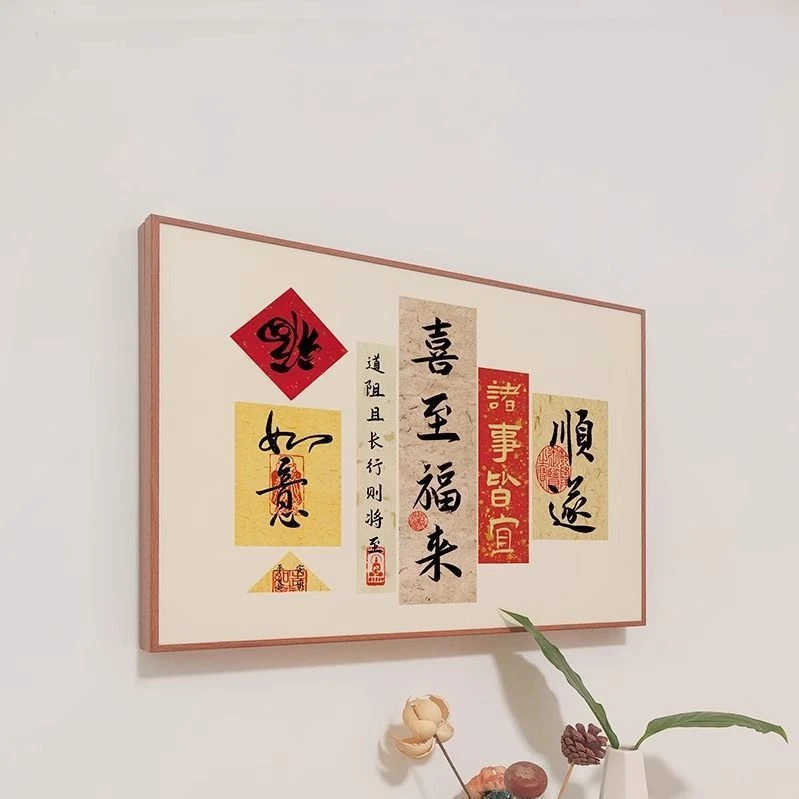 福
如意
道阻且长行则将至
喜至福来
諸事皆宜
順遂